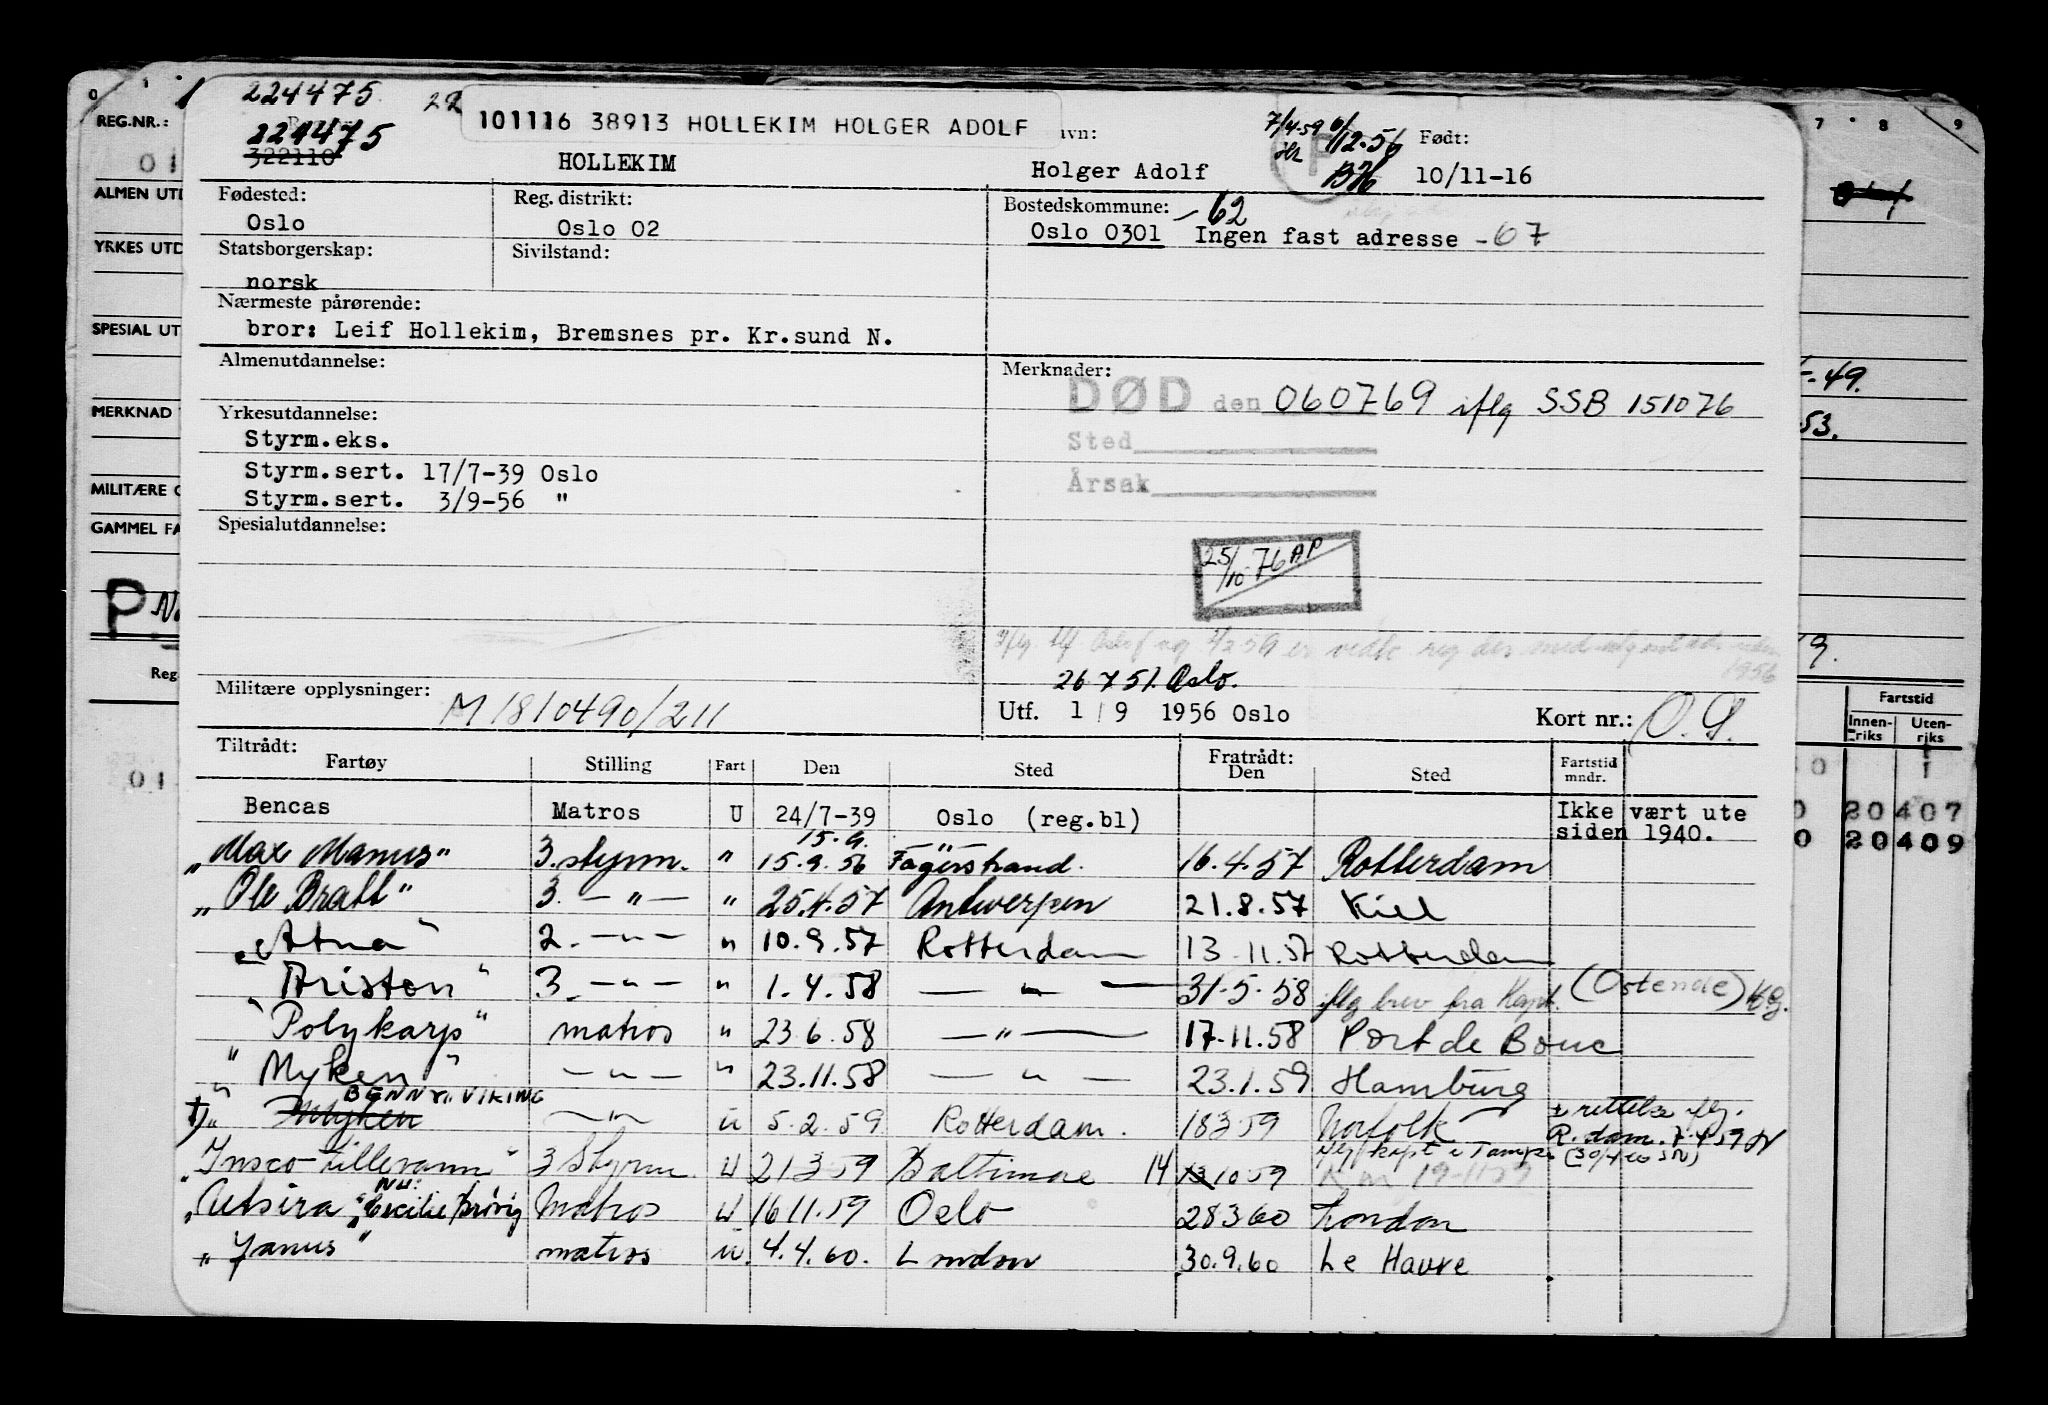 0 1 7 8 9
224475 22
101116 38913 HOLLEKIM HOLGER ADOLF
REG.NR.: 224475 avn: 7/4-59 6/12-56 Født:
01 322110 HOLLEKIM Holger Adolf P BH 10/11-16
ALMEN UTD Fødested: Reg. distrikt: Bostedskommune: -62
Oslo Oslo 02 Oslo 0301 Ingen fast adresse -67
YRKES UTD Statsborgerskap: Sivilstand:
norsk
Nærmeste pårørende:
SPESIAL UT bror: Leif Hollekim, Bremsnes pr. Kr.sund N.
Almenutdannelse: Merknader: -49.
MERKNAD Yrkesutdannelse: DØD den 060769 iflg SSB 151076
Styrm.eks. Sted 53.
Styrm.sert. 17/7-39 Oslo Årsak
MILITÆRE O Styrm.sert. 3/9-56 "
GAMMEL FA Spesialutdannelse:
25/10-76 AP
P
Reg 1956
Militære opplysninger: M1810490/211 26 7 51. Oslo.
Utf. 1/9 1956 Oslo Kort nr.: O.S.
Fartstid
Innen-riks Uten-riks
Tiltrådt: Fratrådt:
Fartøy Stilling Fart Den Sted Den Sted Fartstid mndr.
01 0 1
Bencas Matros U 24/7-39 Oslo (reg.bl) Ikke vært ute 0 20407
15.9. -"- siden 1940. 0 20409
"Max Manus" 3.styrm. " 15.9.56 Fagerstrand. 16.4.57 Rotterdam
"Ole Bratt" 3. -"- " 25.4.57 Antwerpen 21.8.57 Kiel
"Atna" 2. -"- " 10.9.57 Rotterdam 13.11.57 Rotterdam
"Ariston" 3. -"- " 1.4.58 -"- 31.5.58 iflg brev fra Kapt. (Ostende)
"Polykarp" matros " 23.6.58 -"- 17.11.58 Port de Bouc
"Myken" -"- " 23.11.58 -"- 23.1.59 Hamburg
BENNY VIKING
+) " Myken -"- u 5.2.59 Rotterdam. 18359 Norfolk + rettelse iflg.
R.dam. 7-4-59
iflg kapt i Tampa (30/4 60 JN)
"Insco-Lillevann" 3 Styrm U 21359 Baltimore 14 13 1059
NU:
"Utsira" "Cecilie Brøvig Matros U 161159 Oslo 28360 London
"Janus" matros u. 4.4.60. London 30.9.60 Le Havre